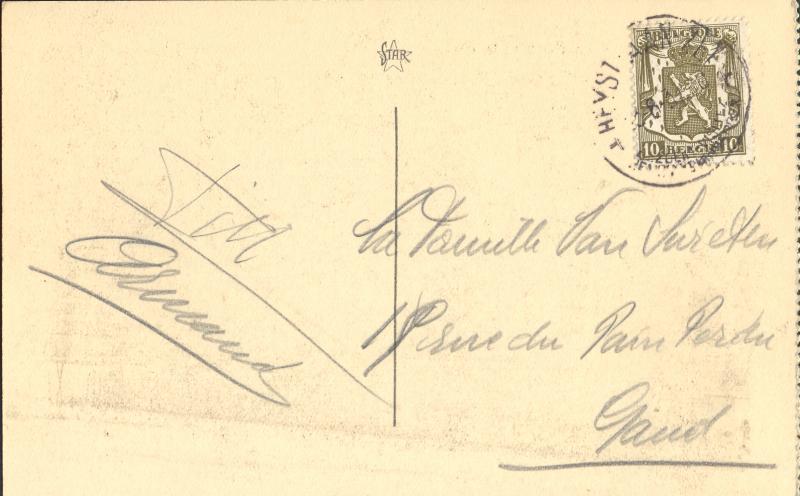 STAR
HEYST
BELGIE
10 BELGIQUE 10
Armand
La Famille Van Swieten
rue du Pain Perdu
Gand